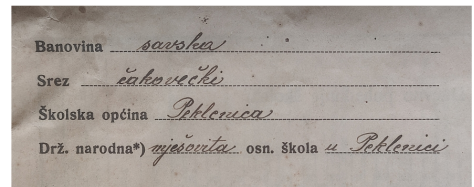 Banovina savska
Srez čakovečki
Školska općina Peklenica
Drž. narodna*) mješovita osn. škola u Peklenici